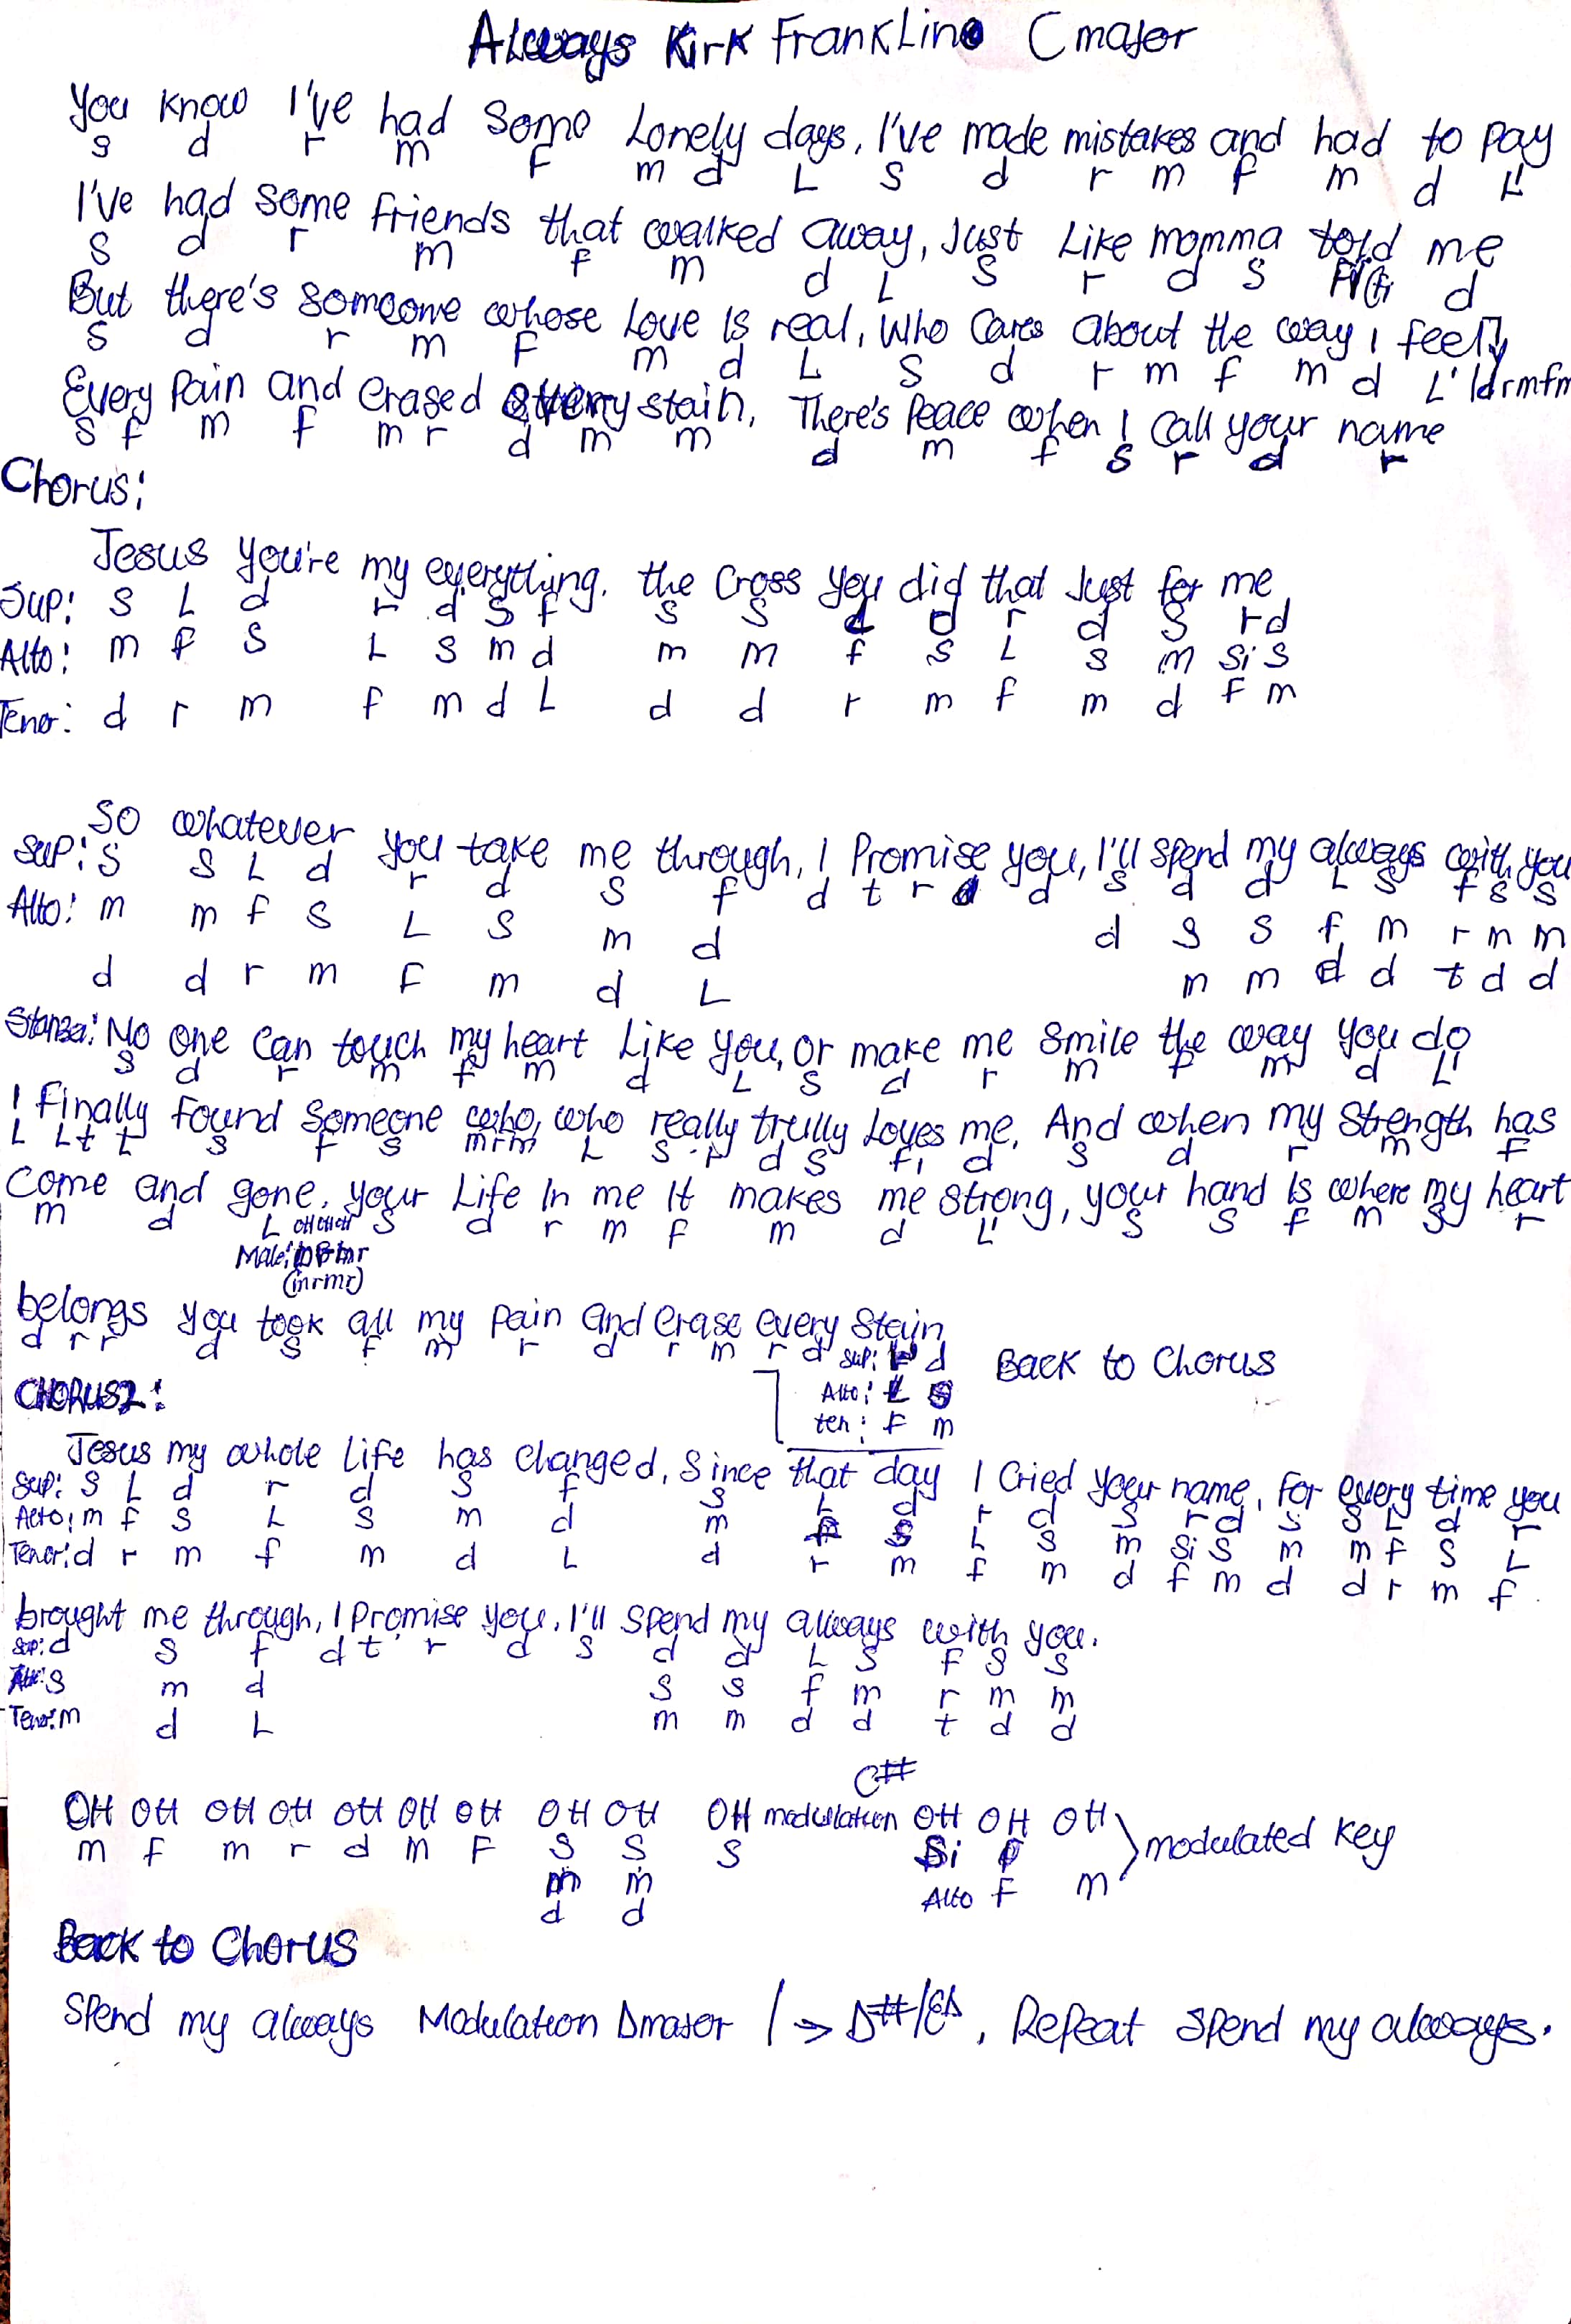 Always Kirk Franklin C major
You know I've had some Lonely days, I've made mistakes and had to pay
s d r m f m d L s d r m f m d L'
I've had some friends that walked away, Just Like momma told me
s d r m f m d L s r d s d
But there's someone whose Love Is real, Who Cares about the way I feel
s d r m F m d L s d r m f m d L' ldrmfm
Every Pain and erased every stain, There's Peace when I call your name
s f m f m r d m m d m f s r d r
Chorus:
Jesus you're my everything. the Cross you did that Just for me
Sup: s L d r d s f s s d d r d s r d
Alto: m f s L s m d m m f s L s m si s
Tenor: d r m f m d L d d r m f m d f m
So whatever you take me through, I Promise you, I'll spend my always with you
Sup: s s L d r d s f d t r d s d d L s f s s
Alto: m m f s L s m d d s s f m r m m
d d r m f m d L m m d d t d d
Stanza: No one can touch my heart Like you, or make me smile the way you do
s d r m f m d L s d r m f m d L'
I finally found someone who, who really trully Loves me. And when my strength has
L L t t s f s m r m L s r d s f i d s d r m f
Come and gone, your Life In me It makes me strong, your hand Is where my heart
m d L OH OH OH s d r m f m d L' s s f m s r
Male:
(mrmr)
belongs you took all my pain and erase every Stain
d r r d s f m r d r m r d Sup: d Back to Chorus
Alto: L s
ten: f m
CHORUS2:
Jesus my whole Life has changed, since that day I cried your name, for every time you
Sup: s L d r d s f s L d r d s r d s s L d r
Alto: m f s L s m d m f s L s m si s m m f s L
Tenor: d r m f m d L d r m f m d f m d d r m f
brought me through, I Promise you, I'll spend my always with you.
Sup: d s f d t r d s d d L s f s s
Alto: s m d s s f m r m m
Tenor: m d L m m d d t d d
C#
OH OH OH OH OH OH OH OH OH OH modulation OH OH OH } modulated key
m f m r d m f s s s Si
m m Alto f m
d d
Back to Chorus
Spend my always Modulation Dmajor / → D#/Eb, Repeat spend my always.